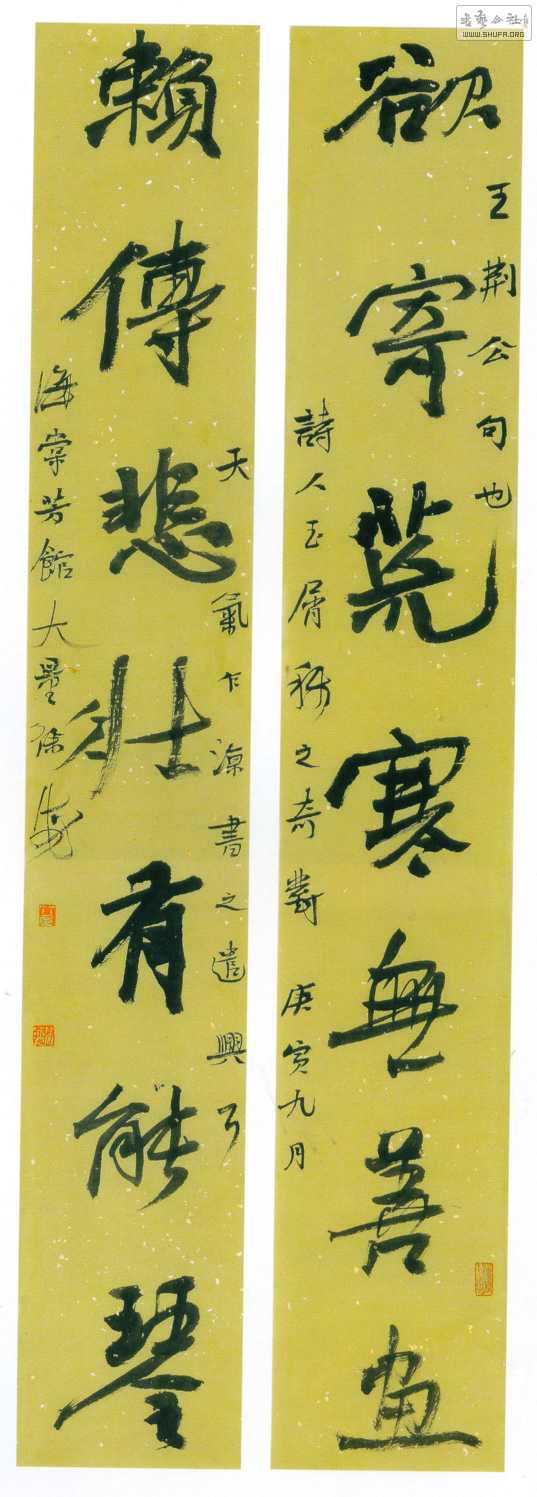 書藝公社
WWW.SHUFA.ORG
欲寄荒寒無善畫
王荊公句也
詩人玉屑稱之奇對 庚寅九月
賴傳悲壯有能琴
天氣乍涼書之遣興了
海棠芳館大墨